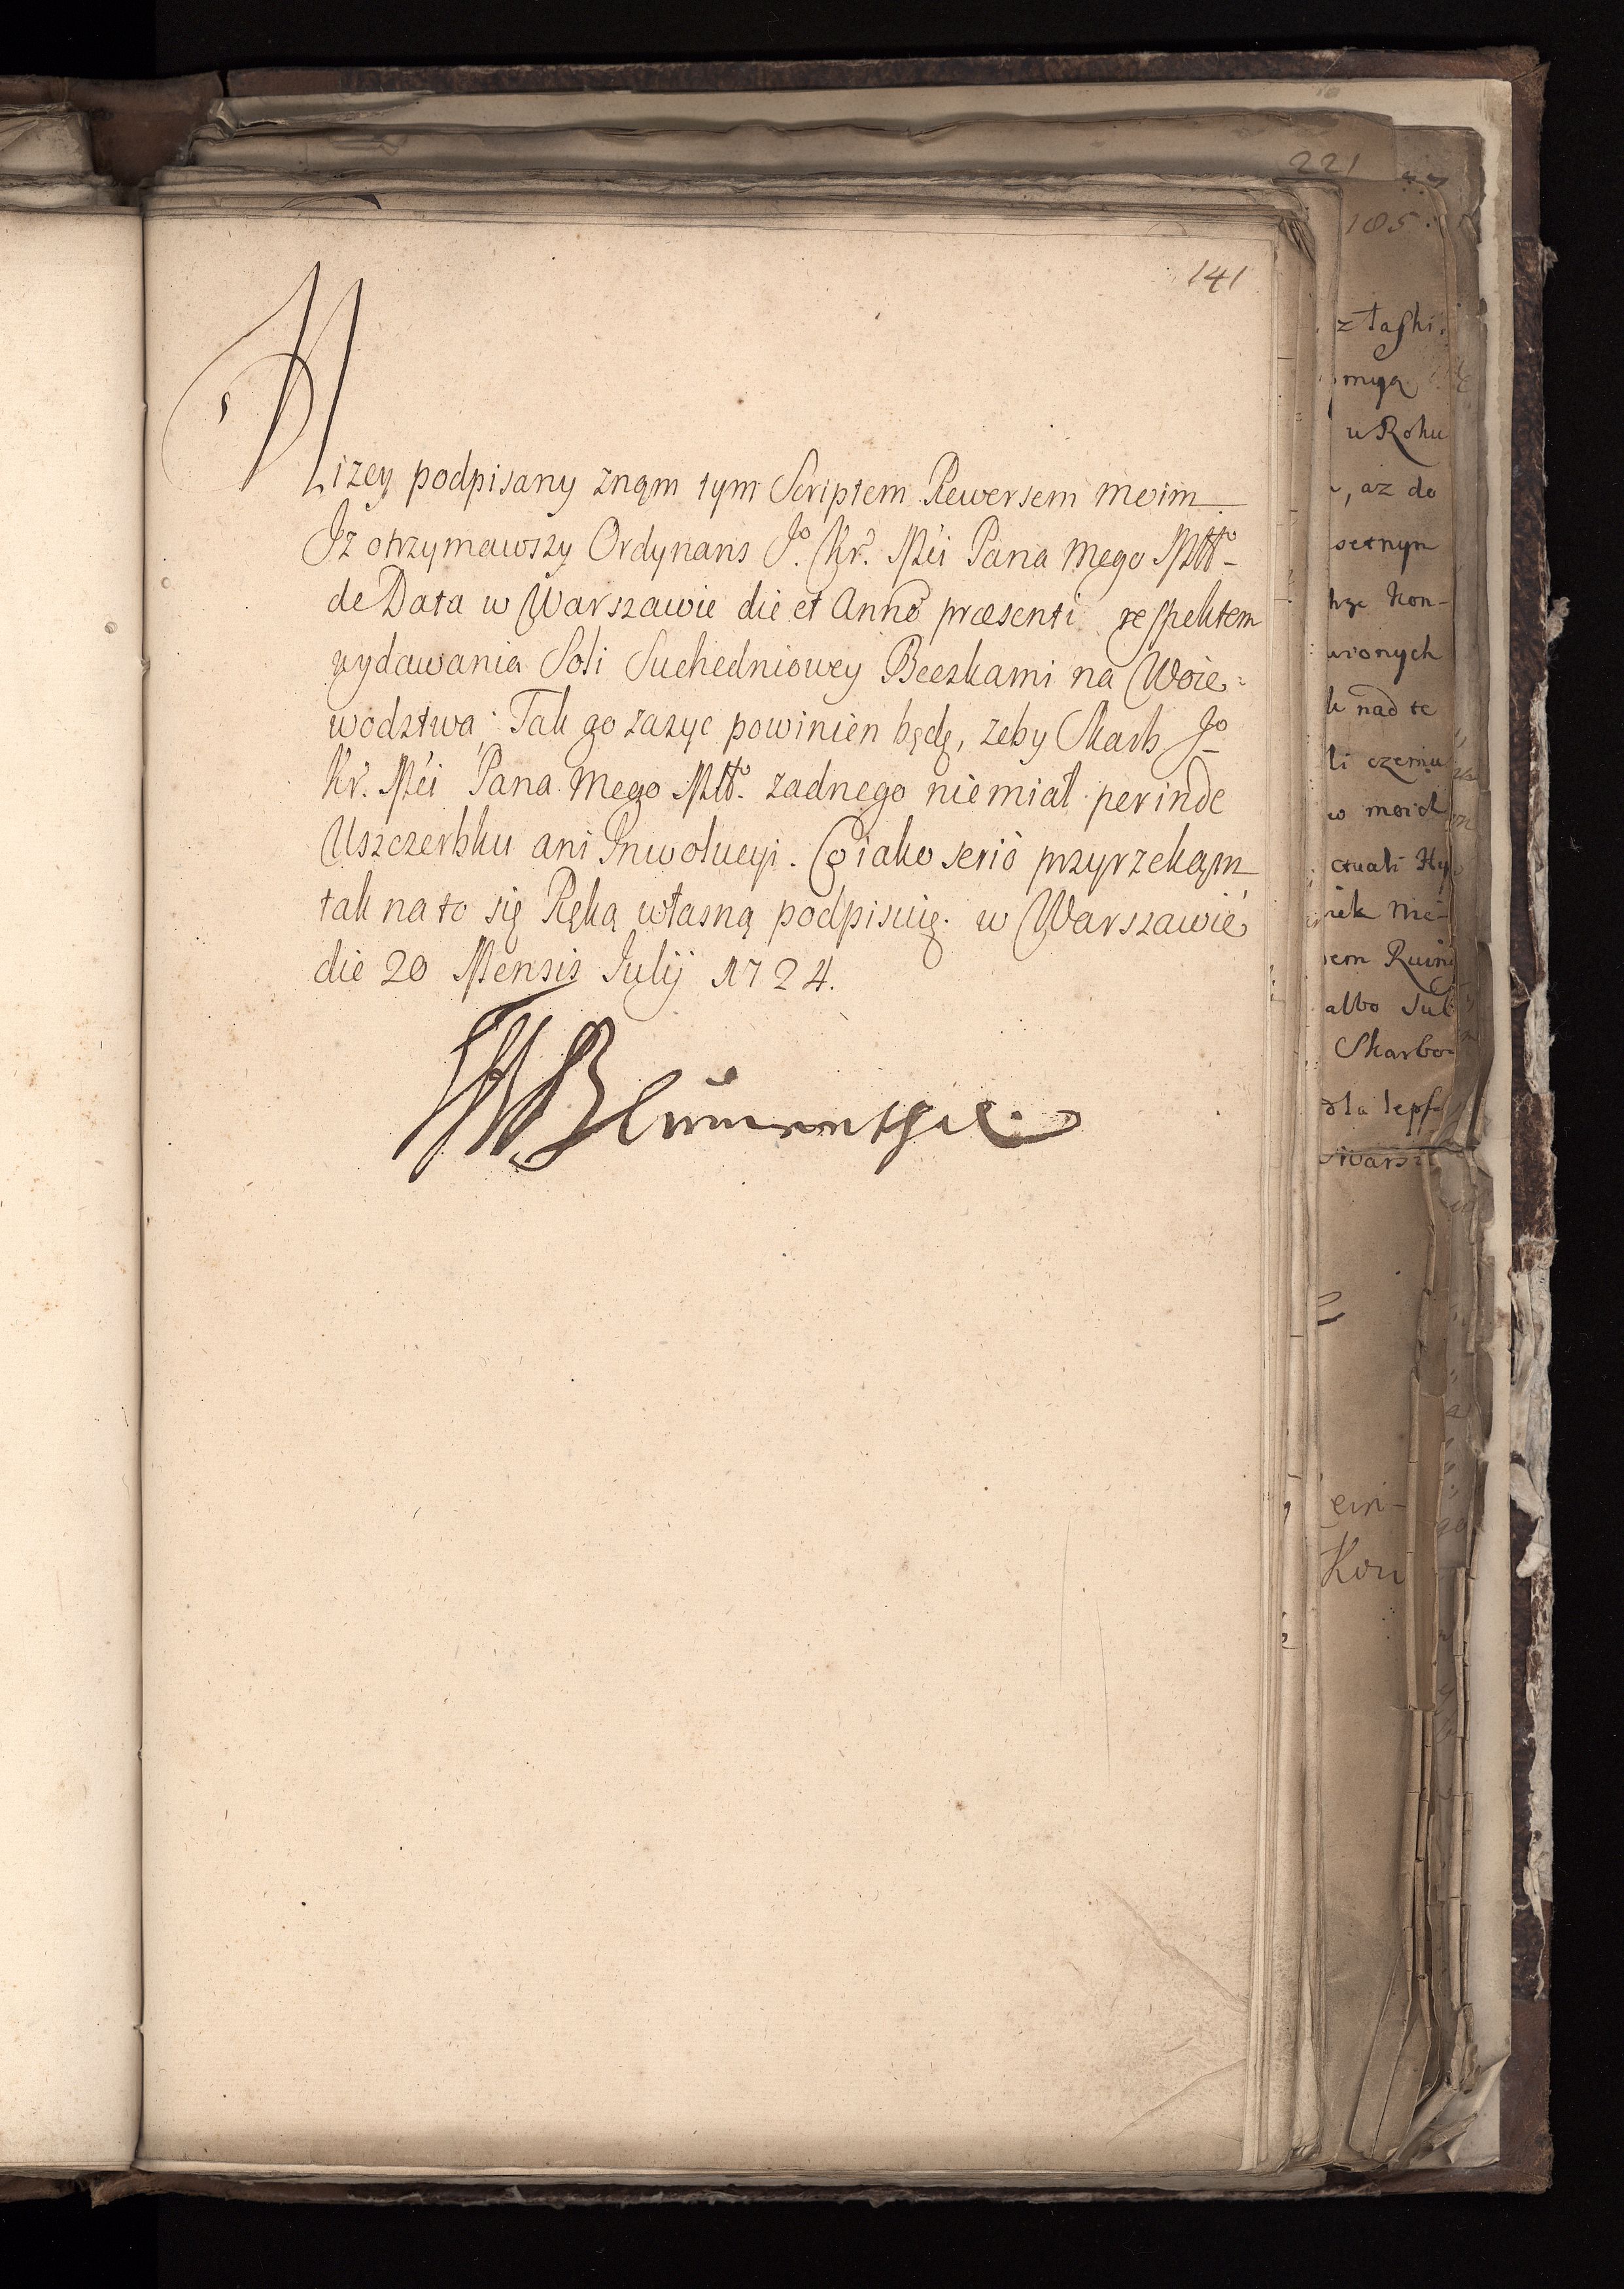 141
Niżey podpisany znąm tym Scriptem Rewersem moim
Iż otrzymawszy Ordynans Jo. Kr. Mći Pana Mego Młł°
de Data w Warszawie die et Anno præsenti respektem
wydawania Soli Suchedniowey Beczkami na Woie-
wodztwa; Tak go zazyc powinien będę, zeby Skarb Jo
Kr. Mći Pana Mego Młł°. zadnego niemiał perinde
Uszczerbku ani Inwolucyi. Co iako serio przyrzekąm
tak na to się Ręką własną podpisuię. w Warszawie
die 20 Mensis Julij 1724.
Blumenthal
221
105.
z łaski
myą
u Roku
, az do
setnym
Kon-
wionych
k nad te
li czemu
w moich
ctuali
nie-
sem Ruin
albo Sul
Skarbo
dla lepsz
Warsz
Kon